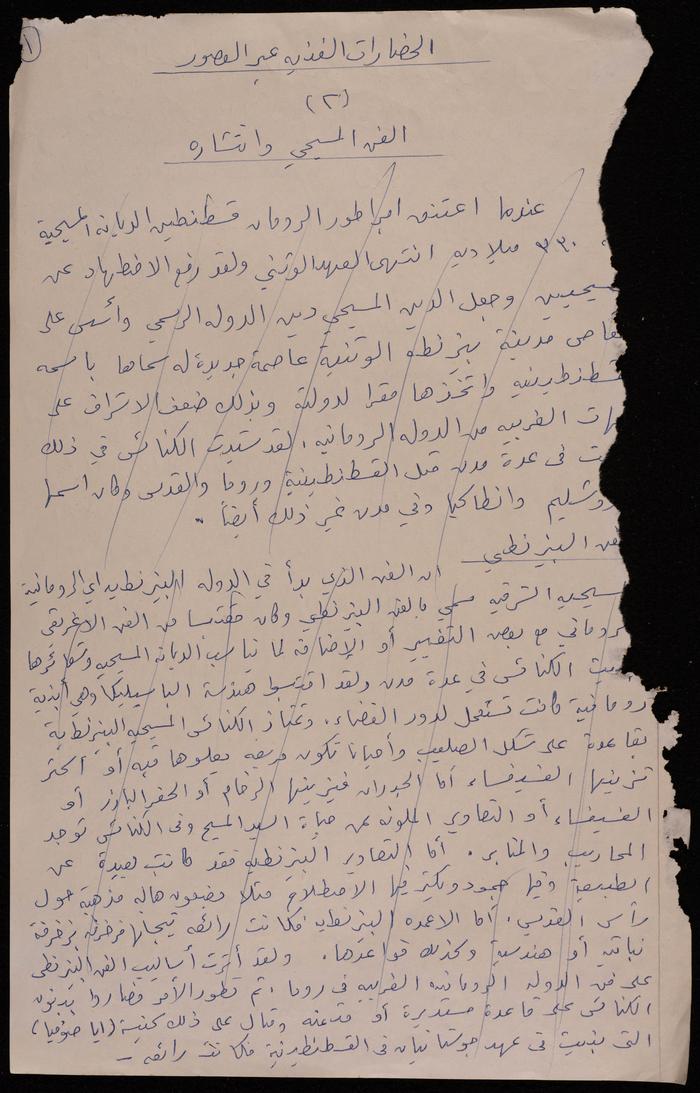 ١
الحضارات الفنيه عبر العصور
(٢)
الفن المسيحي وانتشاره
عندما اعتنق امبراطور الرومان قسطنطين الديانه المسيحية
٣٣٠ ميلاديه انتهى العهد الوثني ولقد رفع الاضطهاد عن
سيحيين وجعل الدين المسيحي دين الدوله الرسمي وأسس على
قاض مدينة بيزنطه الوثنية عاصمة جديدة له سماها باسمه
سطنطينيه واتخذها مقرا لدولته وبذلك ضعف الاشراف على
هات الغربيه من الدوله الرومانيه. لقد شيدت الكنائس في ذلك
قت في عدة مدن مثل القسطنطينية وروما والقدس وكان اسمها
وشليم وانطاكيا وفي مدن غير ذلك أيضاً.
فن البيزنطي
ان الفن الذي بدأ في الدوله البيزنطيه اي الرومانية
سيحيه الشرقيه سمي بالفن البيزنطي وكان مقتبسا من الفن الاغريقي
روماني مع بعض التغيير أو الإضافة لما يناسب الديانه المسيحيه وشعائرها
يت الكنائس في عدة مدن ولقد اقتبسوا هندسة الباسيليكا وهي أبنية
رومانية كانت تستعمل لدور القضاء. وتمتاز الكنائس المسيحيه البيزنطية
بقاعدة على شكل الصليب وأحيانا تكون مربعه يعلوها قبه أو أكثر
تزينها الفسيفساء أما الجدران فيزينها الرخام أو الحفر البارز أو
الفسيفساء أو التصاوير الملونه عن حياة السيد المسيح وفي الكنائس توجد
المحاريب والمنابر. أما التصاوير البيزنطيه فقد كانت بعيدة عن
الطبيعة وفيها جمود ويكثر فيها الاصطلاح مثلا يضعون هاله مذهبة حول
رأس القديس. أما الاعمده البيزنطيه فكانت رائعه تيجانها مزخرفة بزخرفة
نباتيه أو هندسية وكذلك قواعدها. ولقد أثرت أساليب الفن البيزنطي
على فن الدوله الرومانيه الغربيه في روما. ثم تطور الأمر فصاروا يبنون
الكنائس على قاعدة مستديرة أو مثمنه ومثال على ذلك كنيسة (ايا صوفيا)
التي بنيت في عهد جوستانيان في القسطنطينية فكانت رائعه -